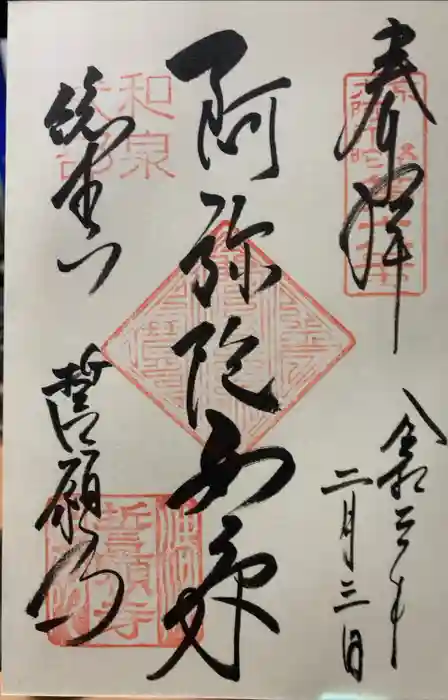 奉拝
令和三年
二月三日
阿弥陀如来
総本山
誓願寺
和泉
誓願寺